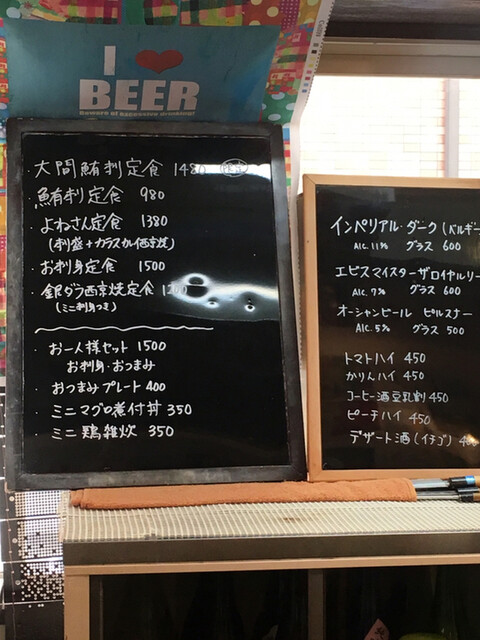 I ❤ BEER
Beware of excessive drinking!
・大間鮪刺定食 1480
・鮪刺定食 980
・よねさん定食 1380
・お刺身定食 1500
・銀ダラ西京焼定食
(ミニ刺身つき)
・お一人様セット 1500
お刺身・おつまみ
・おつまみプレート 400
・ミニマグロ煮付丼 350
・ミニ鶏雑炊 350
インペリアル・ダーク(ベルギー
Alc.11% グラス 600
エビスマイスターザロイヤルリー
Alc.7% グラス 600
オーシャンビール ピルスナー
Alc.5% グラス 500
トマトハイ 450
かりんハイ 450
コーヒー酒豆乳割 450
ピーチハイ 450
デザート酒(イチゴ)